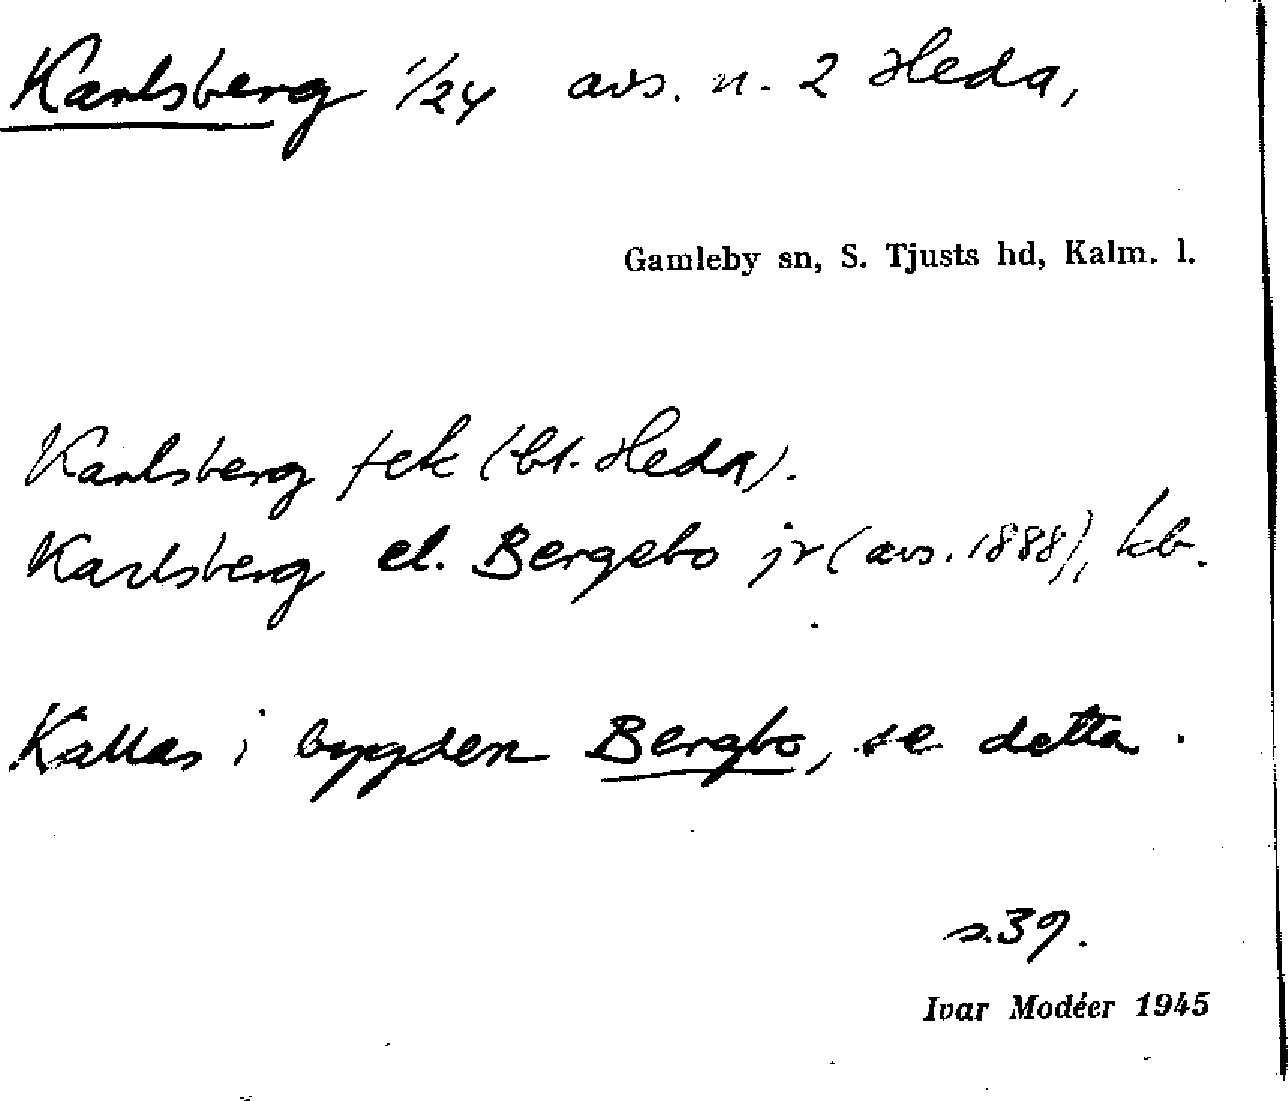 Karlsberg 1/24 avs. n. 2 Heda,
Gamleby sn, S. Tjusts hd, Kalm. l.
Karlsberg fek (bl. Heda).
Karlsberg el. Bergebo jr (avs. 1888), kb.
Kallas i bygden Bergbo, se detta.
s. 39.
Ivar Modéer 1945